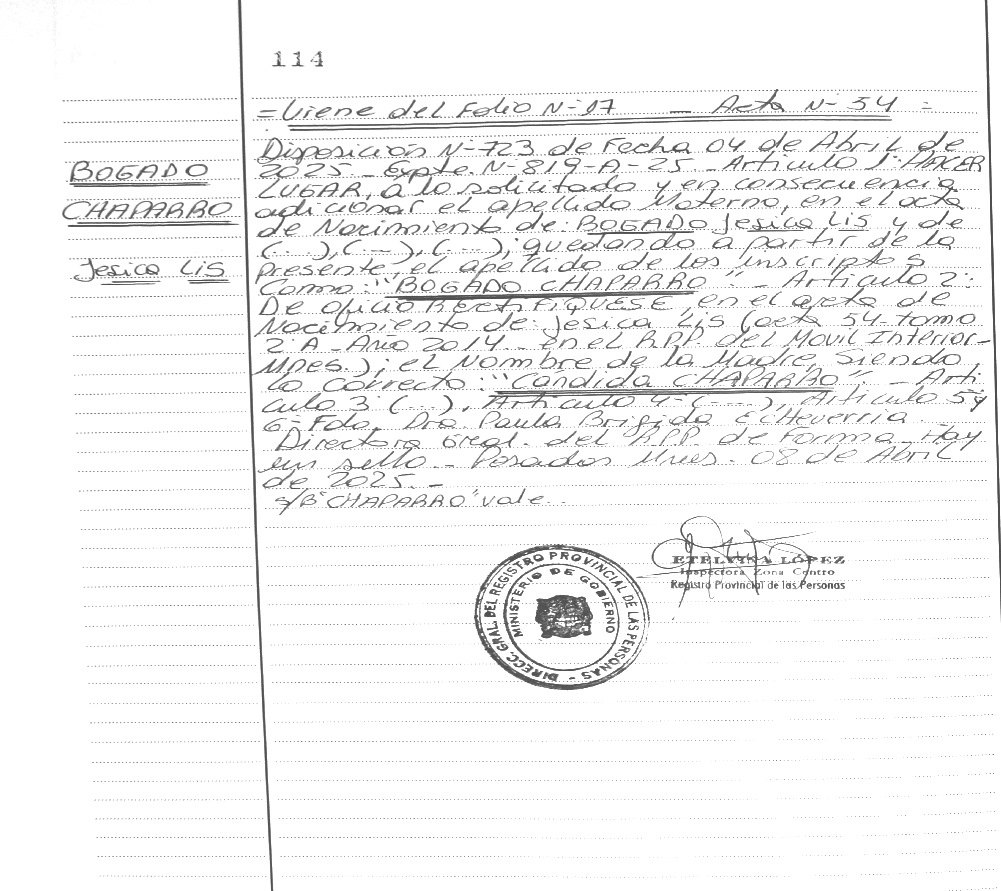 114
= Viene del Folio N- 17 — Acta N- 54 =
BOGADO
CHAPARRO
Jesica Lis
Disposición N-723 de Fecha 04 de Abril de
2025 - Expte. N-819-A-25 - Articulo 1: HACER
LUGAR, a lo solicitado y en consecuencia
adicionar el apellido Materno, en el acta
de Nacimiento de: BOGADO Jesica Lis y de
(...), (...), (...); quedando a partir de la
presente, el apellido de los inscriptos
Como: "BOGADO CHAPARRO" - Articulo 2:
De oficio RECTIFIQUESE, en el acta de
Nacimiento de: Jesica Lis (acta 54 tomo
2º A - Año 2014 - en el RPP del Movil Interior-
Mnes.); el Nombre de la Madre, siendo
lo correcto: "Candida CHAPARRO". - Arti-
culo 3 (...), Articulo 4- (...), Articulo 5 y
6- Fdo. Dra. Paula Brigida Echeverria -
Directora Gral. del RPP. de Forma - Hay
un sello - Posadas Mnes. 08 de Abril
de 2025. -
s/B "CHAPARRO" vale.
ETELVINA LÓPEZ
Inspectora Zona Centro
Registro Provincial de las Personas
DIRECC. GRAL. DEL REGISTRO PROVINCIAL DE LAS PERSONAS -
MINISTERIO DE GOBIERNO